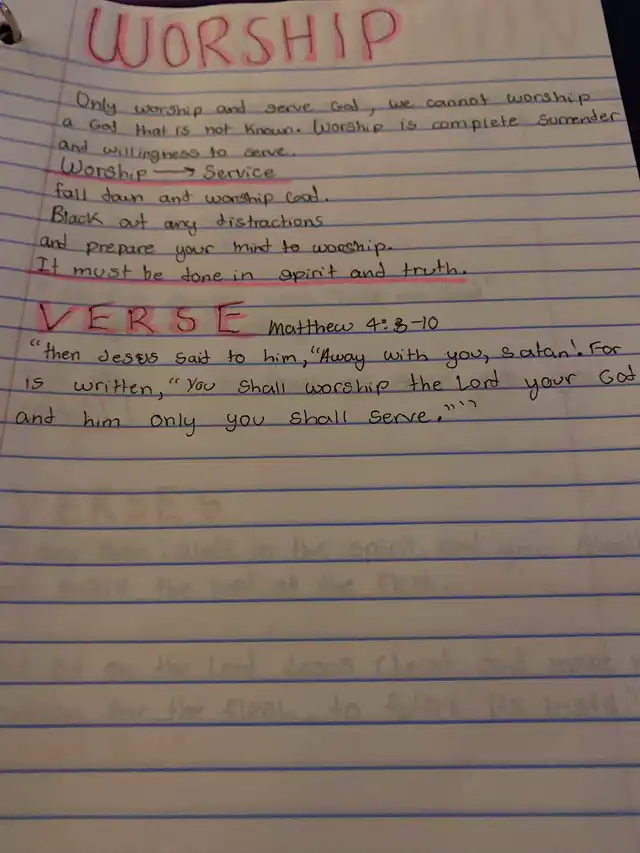 WORSHIP
Only worship and serve God, we cannot worship
a God that is not known. Worship is complete surrender
and willingness to serve.
Worship → Service
fall down and worship God.
Black out any distractions
and prepare your mind to worship.
It must be done in spirit and truth.
VERSE Matthew 4:8-10
"then Jesus said to him, "Away with you, Satan! For
is written, "You shall worship the Lord your God
and him only you shall serve.”’”
VERSES
in the spirit and you
the flesh.
the Lord Jesus Christ and make
for the flesh, to fulfill its lusts